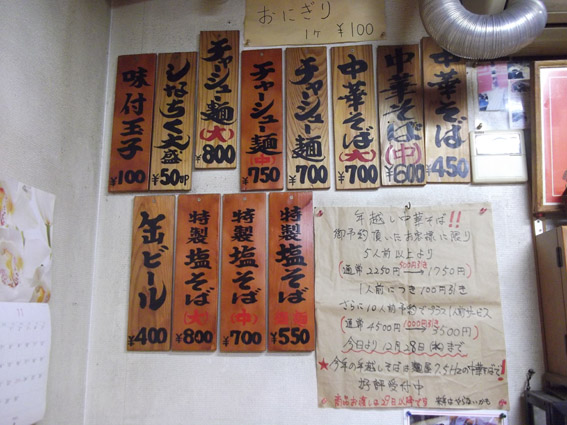 おにぎり
1ヶ ¥100
中華そば
¥450
中華そば(中)
¥600
中華そば(大)
¥700
チャーシュー麺
¥700
チャーシュー麺(中)
¥750
チャーシュー麺(大)
¥800
しなちく大盛
¥50叩
味付玉子
¥100
特製塩そば
¥550
特製塩そば(中)
¥700
特製塩そば(大)
¥800
缶ビール
¥400
年越し中華そば!!
御予約頂いたお客様に限り
5人前以上より
(通常2250円 500円引き→1750円)
1人前につき100円引き
さらに10人前予約でプラス1人前サービス
(通常4500円 1000円引き→3500円)
今日より12月28日(水)まで
★今年の年越しそばは
の中華そばで!
好評受付中
商品お渡しは29日以降です
11